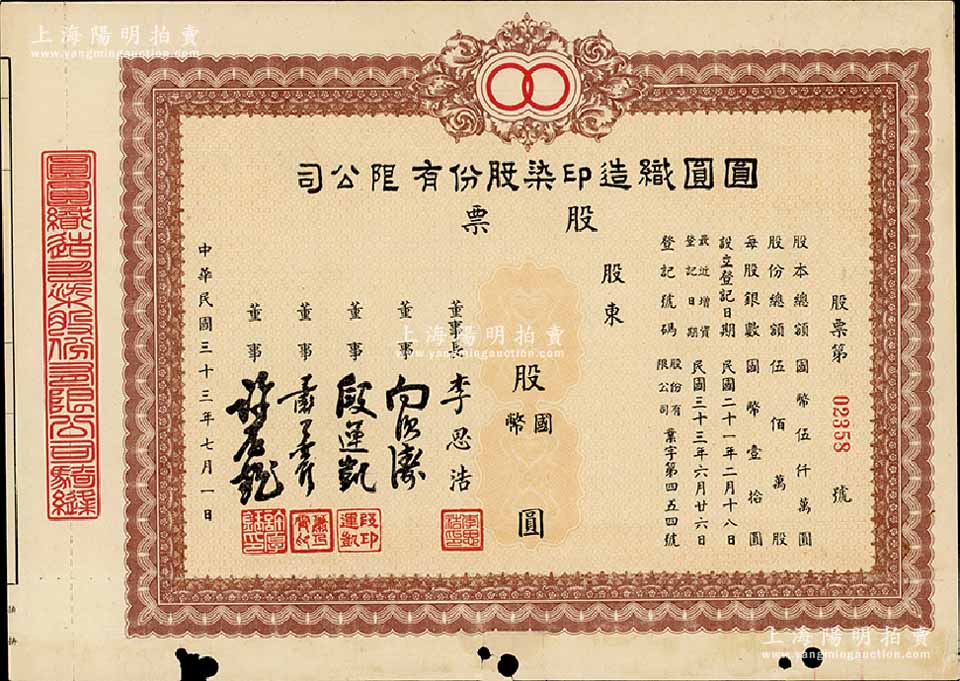 上海陽明拍賣
www.yangmingauction.com
圓圓織造印染股份有限公司
股票
股票第 02358 號
股本總額 國幣伍仟萬圓
股份總額 伍佰萬股
每股銀數 國幣壹拾圓
設立登記日期 民國二十一年二月十八日
最近增資登記日期 民國三十三年六月廿六日
登記號碼 股份有限公司業字第四五四號
股東
股 國幣 圓
董事長 李思浩
董事
董事 段運凱
董事
董事
中華民國三十三年七月一日
段運凱印
圓圓織造印染股份有限公司騎縫
上海陽明拍賣
www.yangmingauction.com
上海陽明拍賣
www.yangmingauction.com